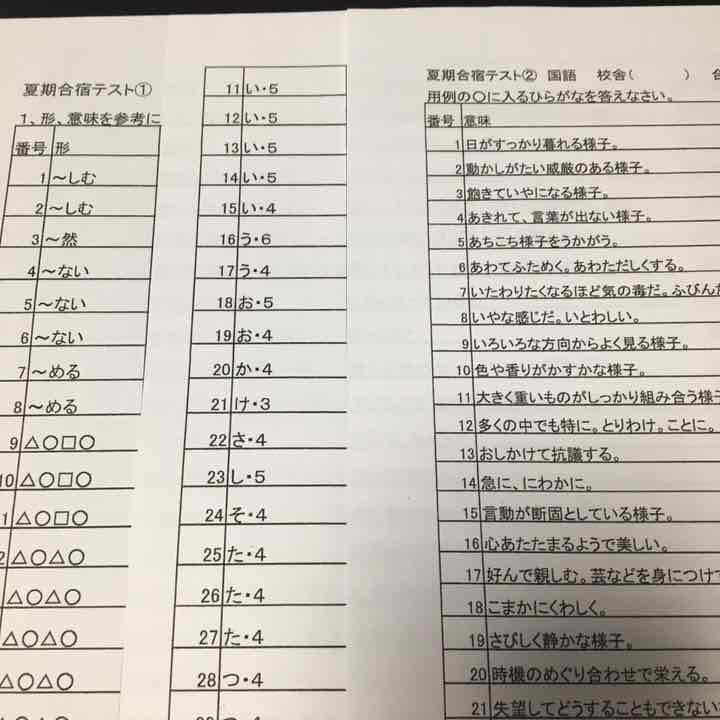 夏期合宿テスト①
1、形、意味を参考に
番号 形
1 ～しむ
2 ～しむ
3 ～然
4 ～ない
5 ～ない
6 ～ない
7 ～める
8 ～める
9 △○□○
10 △○□○
1 △○□○
2 △○△○
△○△○
△○△○
△○△○
11 い・5
12 い・5
13 い・5
14 い・5
15 い・4
16 う・6
17 う・4
18 お・5
19 お・4
20 か・4
21 け・3
22 さ・4
23 し・5
24 そ・4
25 た・4
26 た・4
27 た・4
28 つ・4
夏期合宿テスト② 国語 校舎( ) 合
用例の○に入るひらがなを答えなさい。
番号 意味
1 日がすっかり暮れる様子。
2 動かしがたい威厳のある様子。
3 飽きていやになる様子。
4 あきれて、言葉が出ない様子。
5 あちこち様子をうかがう。
6 あわてふためく。あわただしくする。
7 いたわりたくなるほど気の毒だ。ふびんだ
8 いやな感じだ。いとわしい。
9 いろいろな方向からよく見る様子。
10 色や香りがかすかな様子。
11 大きく重いものがしっかり組み合う様子
12 多くの中でも特に。とりわけ。ことに。
13 おしかけて抗議する。
14 急に、にわかに。
15 言動が断固としている様子。
16 心あたたまるようで美しい。
17 好んで親しむ。芸などを身につけて
18 こまかにくわしく。
19 さびしく静かな様子。
20 時機のめぐり合わせで栄える。
21 失望してどうすることもできない